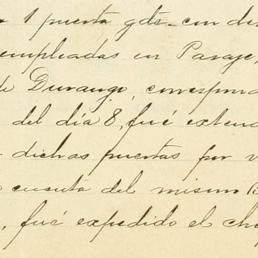 1 puerta gds. con de
empleadas en Pasaje,
de Durango, correspond
del día 8, fué exten
dichas puertas por v
cuenta del mismo B
, fué expedido el ch